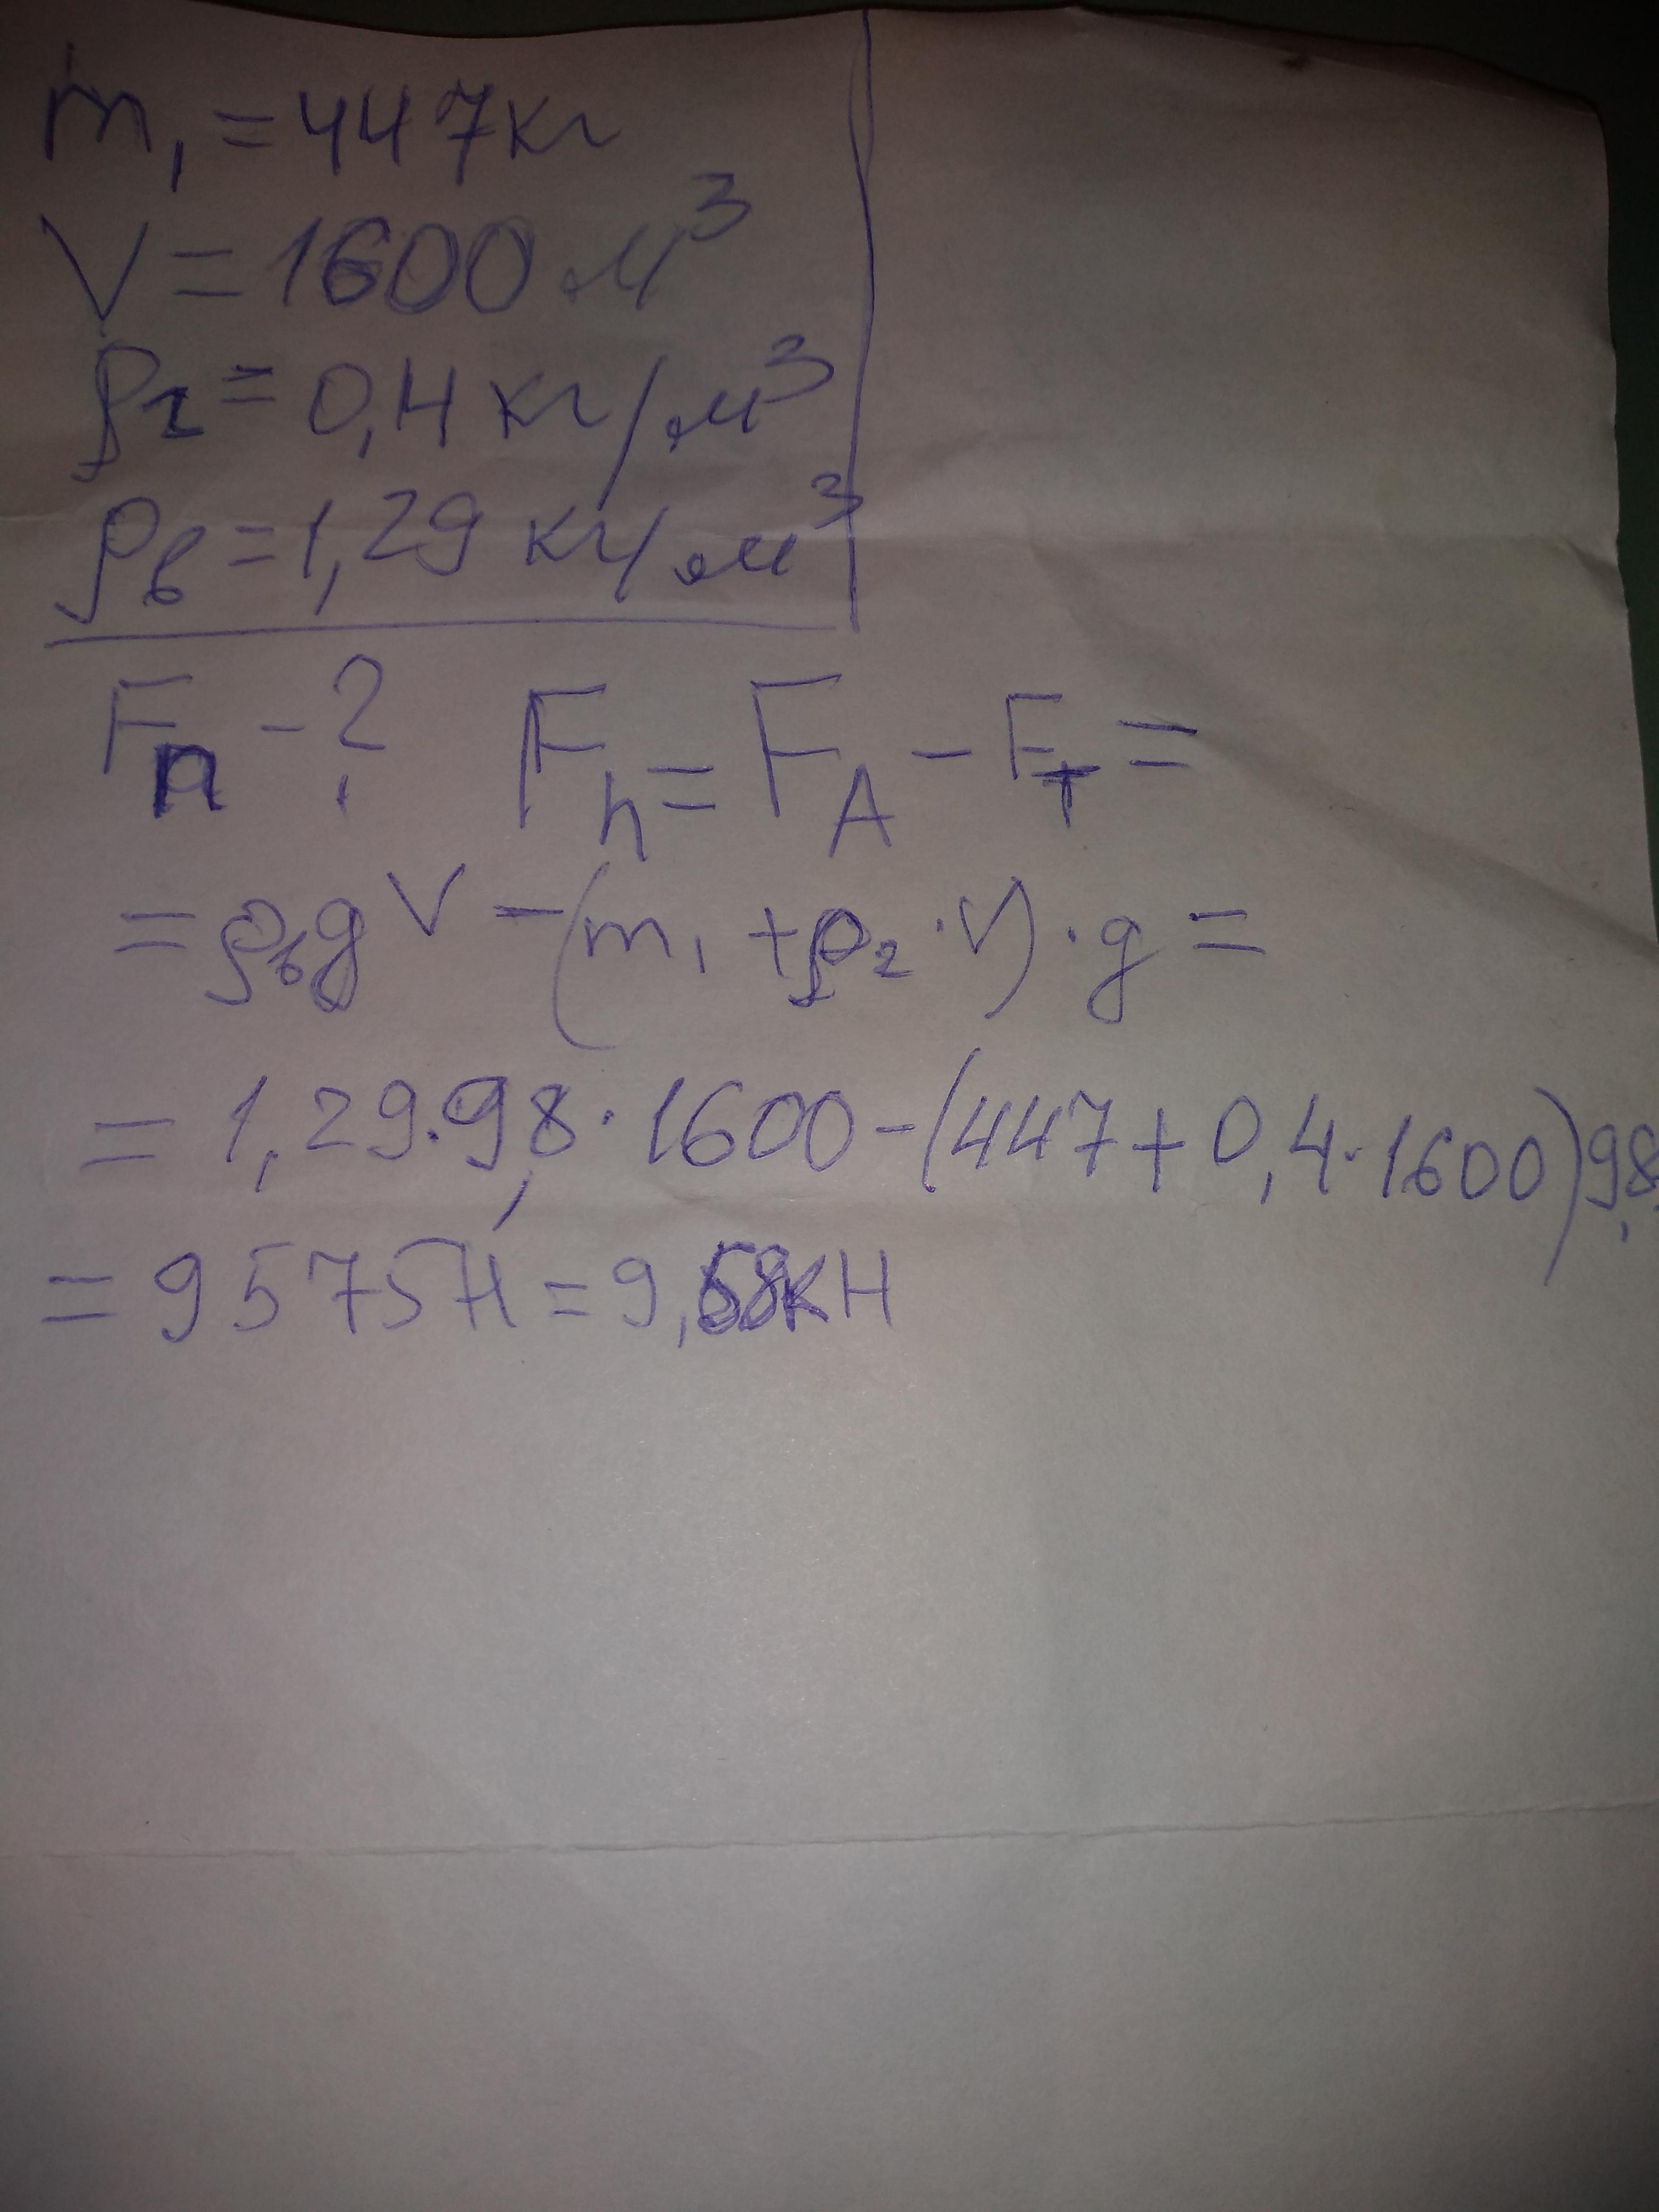 m₁ = 447кг
V = 1600 м³
ρ₂ = 0,4 кг/м³
ρв = 1,29 кг/м³
Fп - ? Fп = FA - Fт =
= ρвgV - (m₁ + ρ₂ · V) · g =
= 1,29 · 9,8 · 1600 - (447 + 0,4 · 1600) 9,8
= 9575Н = 9,58кН